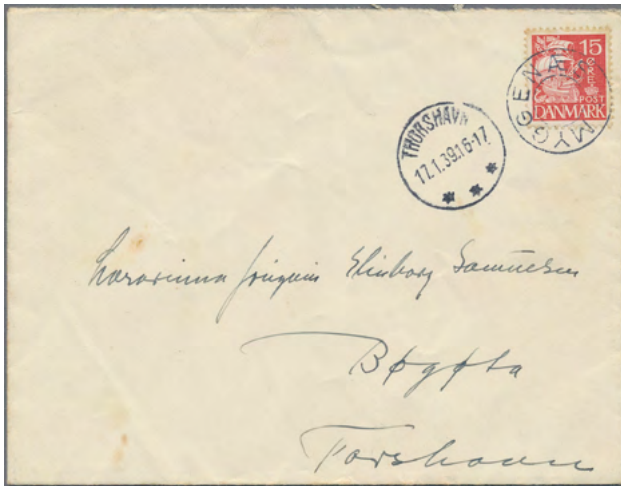 15
ØRE
POST
DANMARK
MYGGENÆS
THORSHAVN
17.1.39.16-17
Lærarinna frúgvin Elinborg Samuelsen
Bøgøta
Torshavn